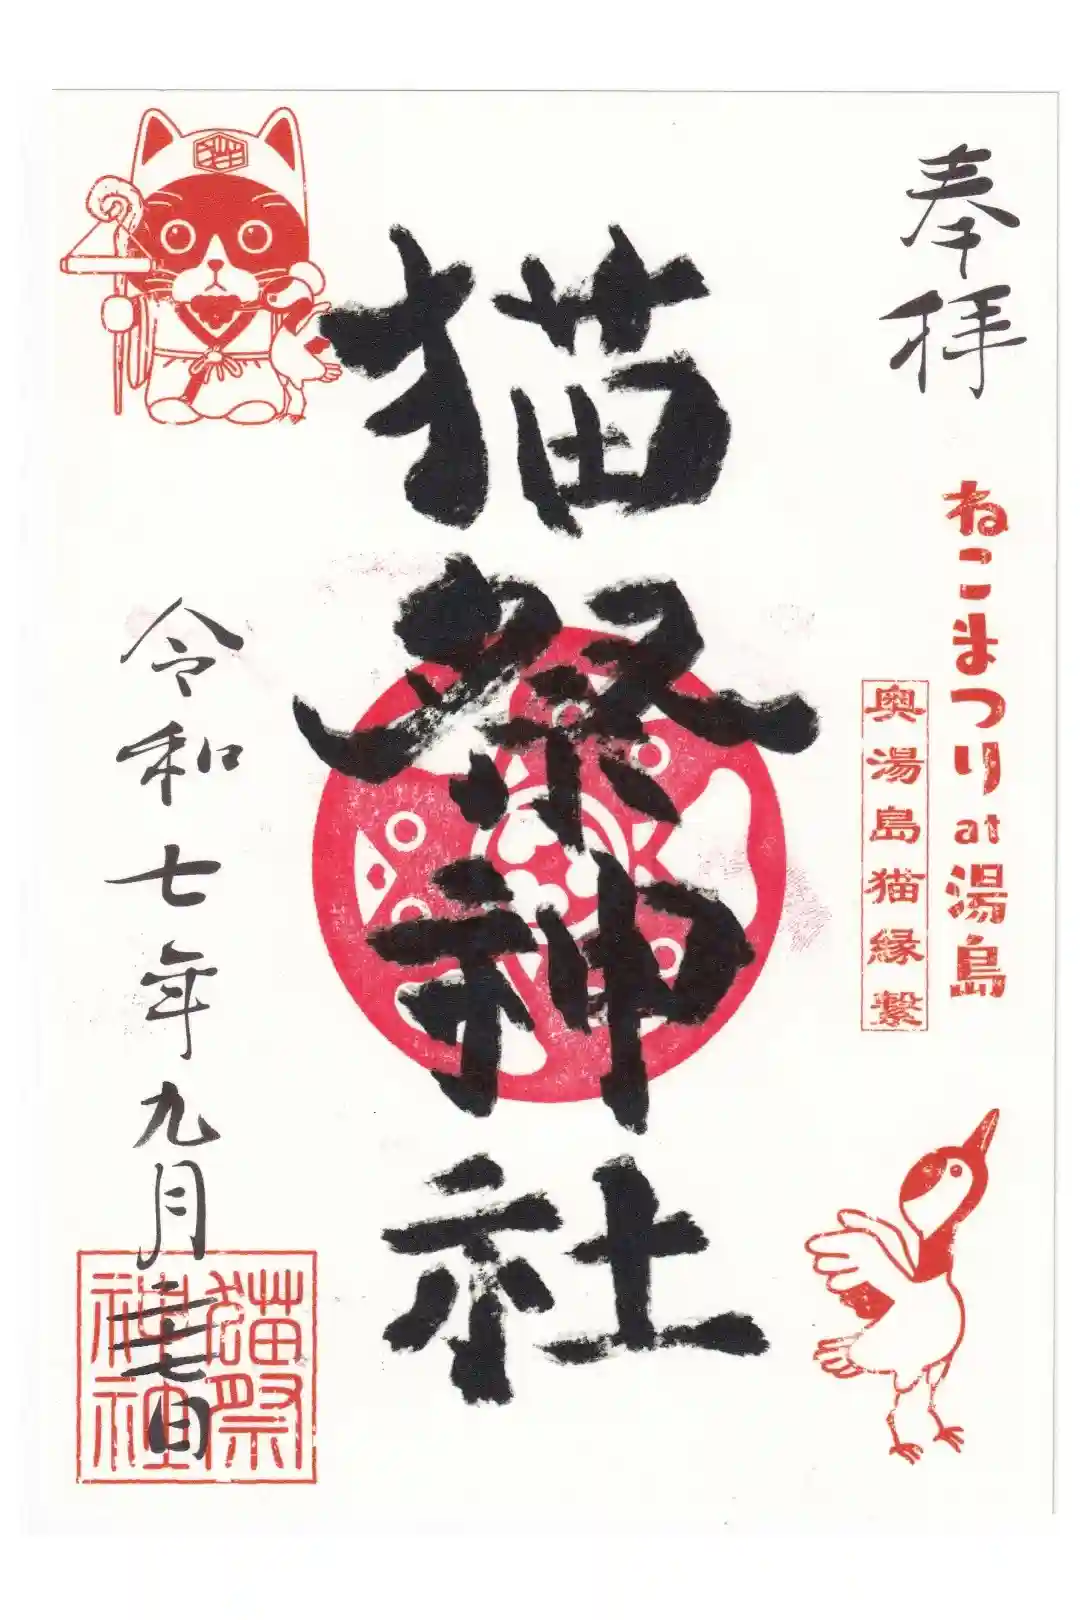 奉拝
ねこまつりat湯島
奥湯島猫縁繋
猫祭神社
令和七年九月二十七日
猫祭
神社